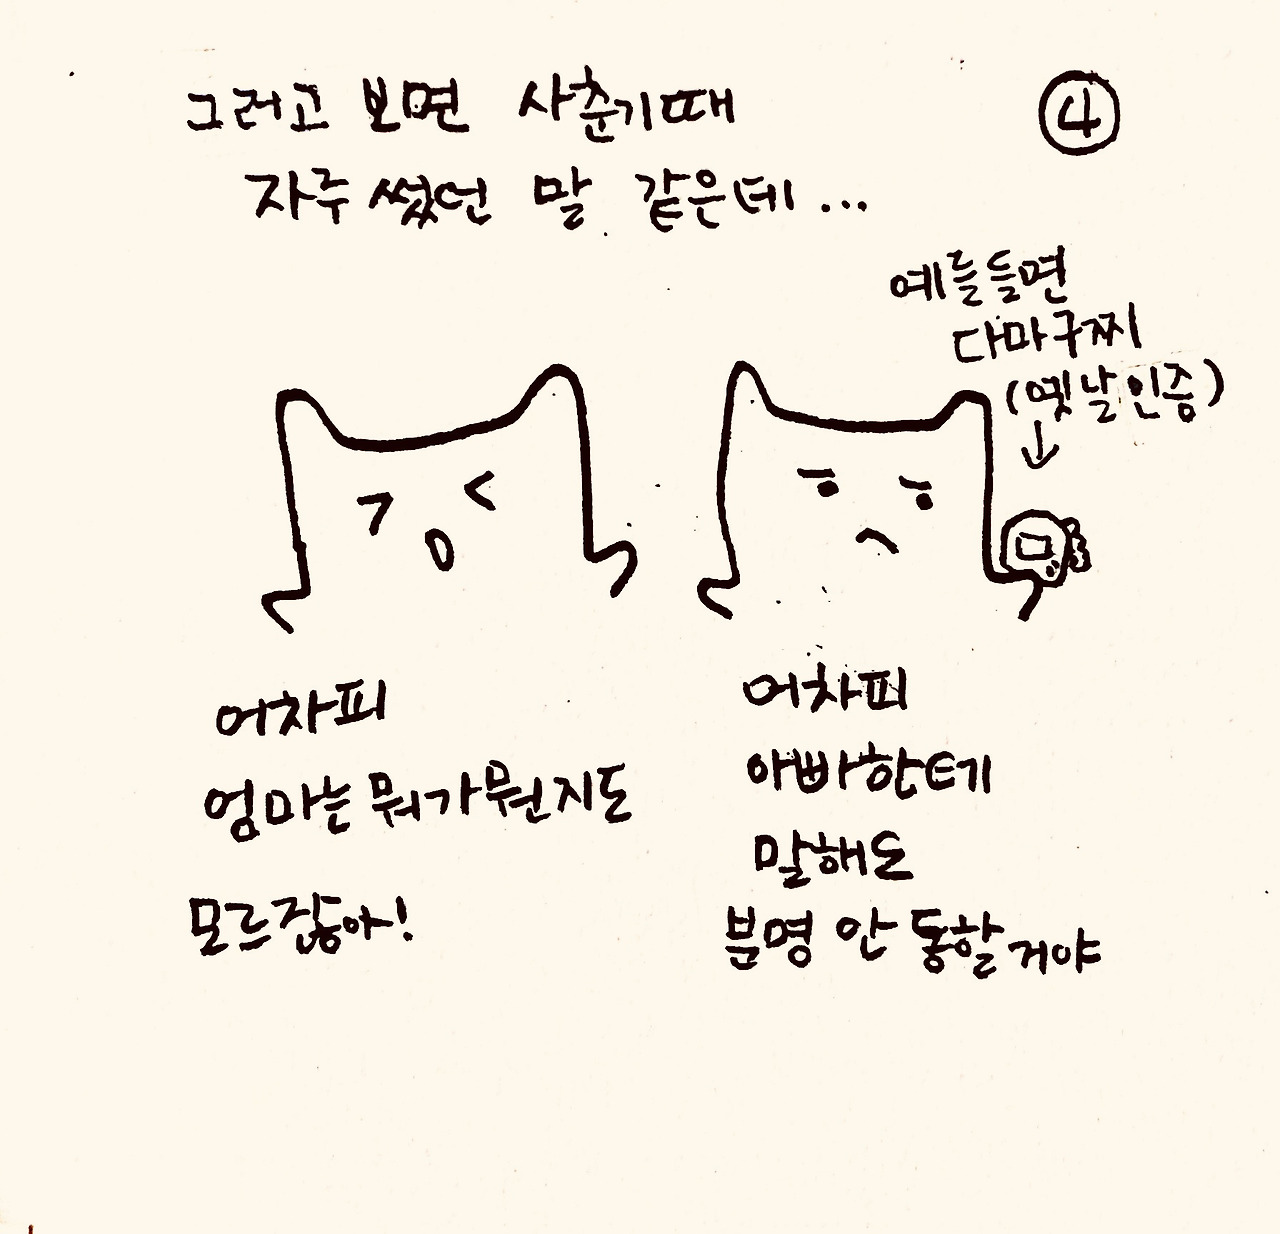 그러고 보면 사춘기때
④
자주 썼던 말 같은데...
예를들면
다마구찌
(옛날인증)
↓
어차피
엄마는 뭐가뭔지도
모르잖아!
어차피
아빠한테
말해도
분명 안 통할 거야